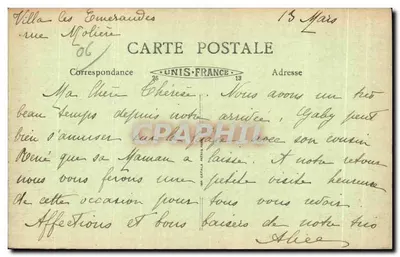 Villa les Emeraudes
rue Molière
13 Mars
06
CARTE POSTALE
Correspondance
UNIS-FRANCE
Adresse
Ma chère Thérèse. Nous avons un très
beau temps depuis notre arrivée. Gaby peut
bien s'amuser avec son cousin
René que sa Maman a laissé. A notre retour
nous vous ferons une petite visite heureux
de cette occasion pour tous vous revoir
Affections et bons baisers de notre trio
Alice
CPAPHIL